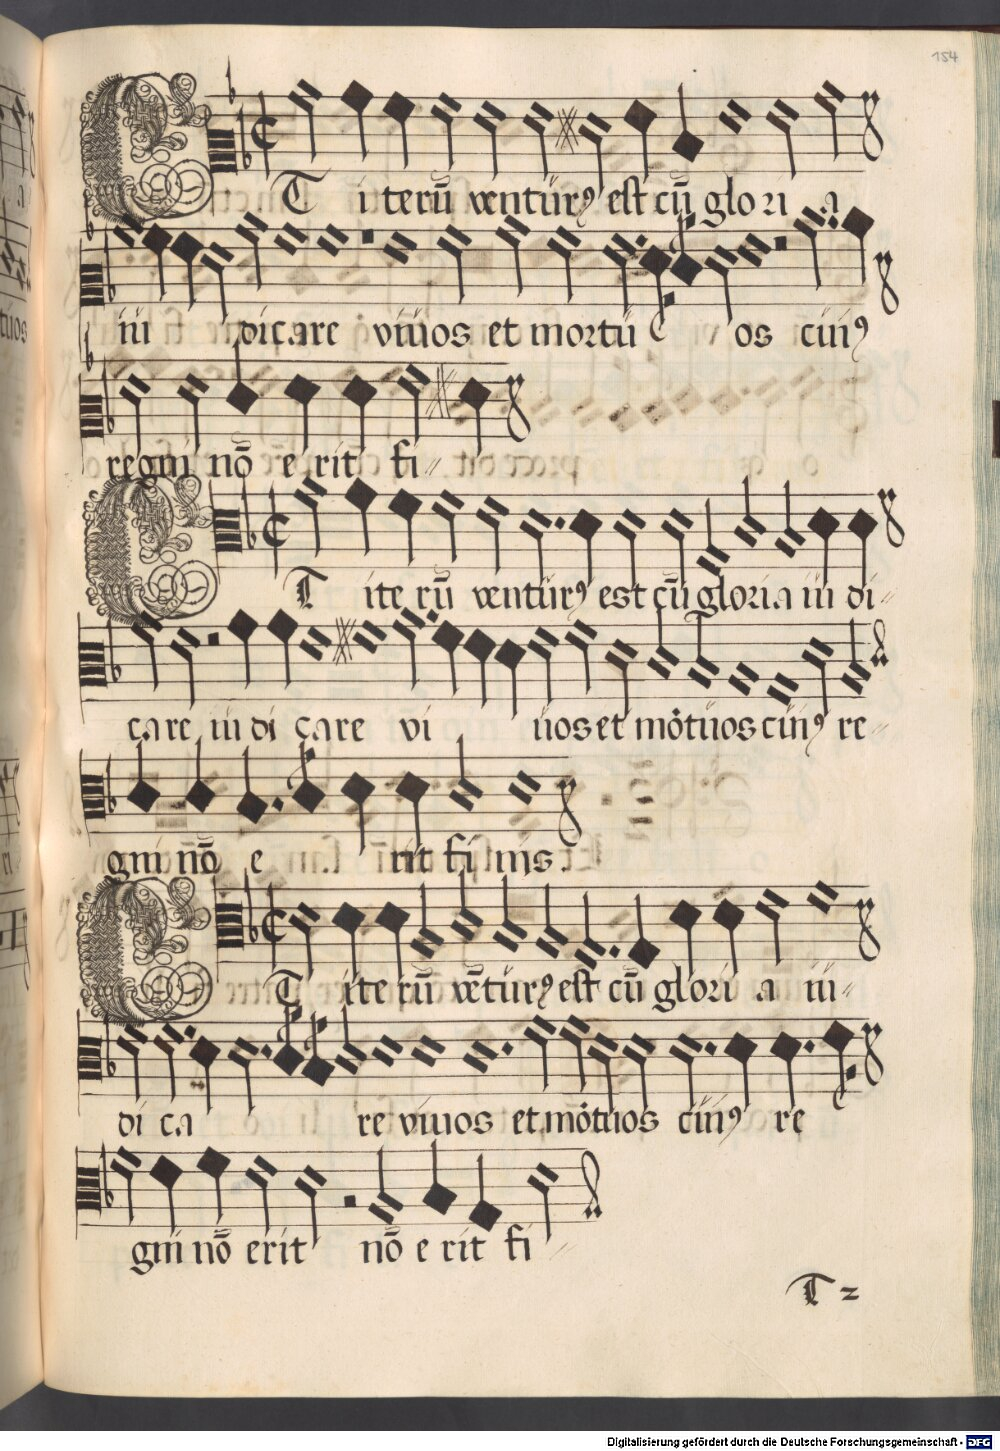 154
Et iterū ventur⁹ est cū glori a
iu dicare viuos et mortu os cui⁹
regni nō e rit fi
Et ite rū ventur⁹ est cū gloria iu di
care iu di care vi uos et mo̊tuos cui⁹ re
gni nō e rit fi nis.
Et ite rū vētur⁹ est cū glori a iu
di ca re viuos et mo̊tuos cui⁹ re
gni nō erit nō e rit fi
T 2
Digitalisierung gefördert durch die Deutsche Forschungsgemeinschaft - DFG